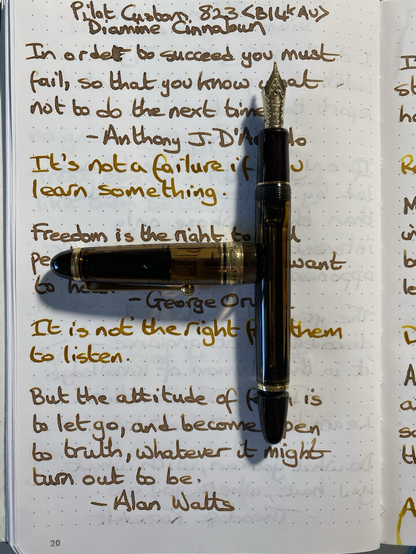 Pilot Custom 823 <B14K AU>
Diamine Cinnabun
In order to succeed you must
fail, so that you know what
not to do the next time
- Anthony J. D'A
It's not a failure if you
learn something
Freedom is the right to
pe want
to
- George Or
It is not the right f them
to listen.
But the attitude of f is
to let go, and become open
to truth, whatever it might
turn out to be.
- Alan Watts
20